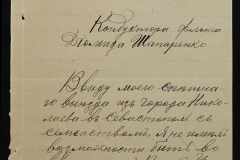 Кондуктора флота
Діомида Шапаренко
Въ виду моего спѣшна-
го выѣзда изъ города Нико-
лаева въ Севастополь съ
семействомъ, я не имѣлъ
возможности быть